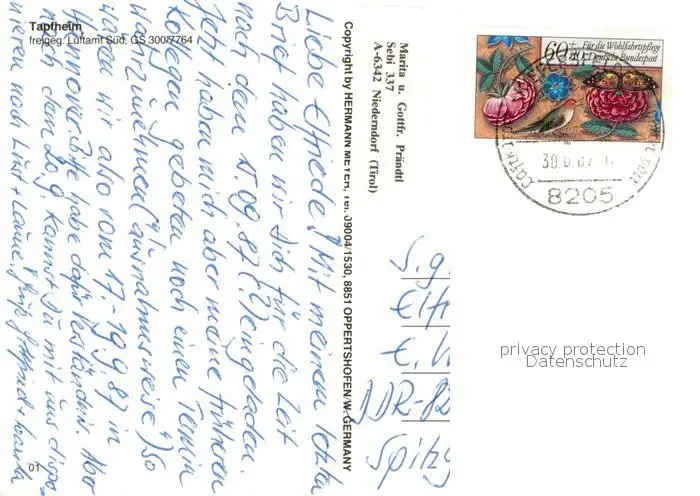 Tapfheim
freigeg. Luftamt Süd, GS 300/7764
Liebe Elfriede! Mit meinem letzten
Brief haben wir Dich für die Zeit
nach dem 15.09.87 (?) eingeladen.
Jetzt haben mich aber meine früheren
Kollegen gebeten noch einen Termin
wahrzunehmen ("Ausnahmsreise") So
wären wir also vom 17.-19.9.87 in
Hannover. Bitte habe dafür Verständnis. Aber
nach dem 20.9. kannst Du mit uns dispo-
nieren nach Lust + Laune!
01
Copyright by HERMANN MEYER, Tel. 09004/1530, 8851 OPPERTSHOFEN/W. GERMANY
Marita u. Gottfr. Prändtl
Sebi 337
A-6342 Niederndorf (Tirol)
60+30
Für die Wohlfahrtspflege
Deutsche Bundespost
8205
S.g.
DDR-82
privacy protection
Datenschutz